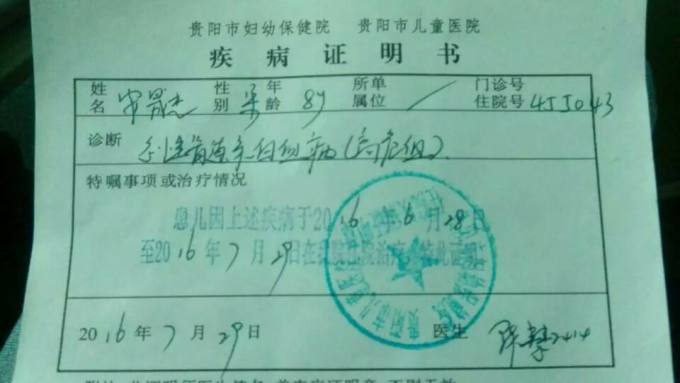 贵阳市妇幼保健院 贵阳市儿童医院
疾病证明书
姓名 性别 男 年龄 8y 所属单位 / 门诊号住院号 455043
诊断 急性髓系白血病(高危组).
特嘱事项或治疗情况
患儿因上述疾病于2016年6月28日
至2016年7月29日在我院住院治疗 特此证明
2016年7月29日 医生 2414